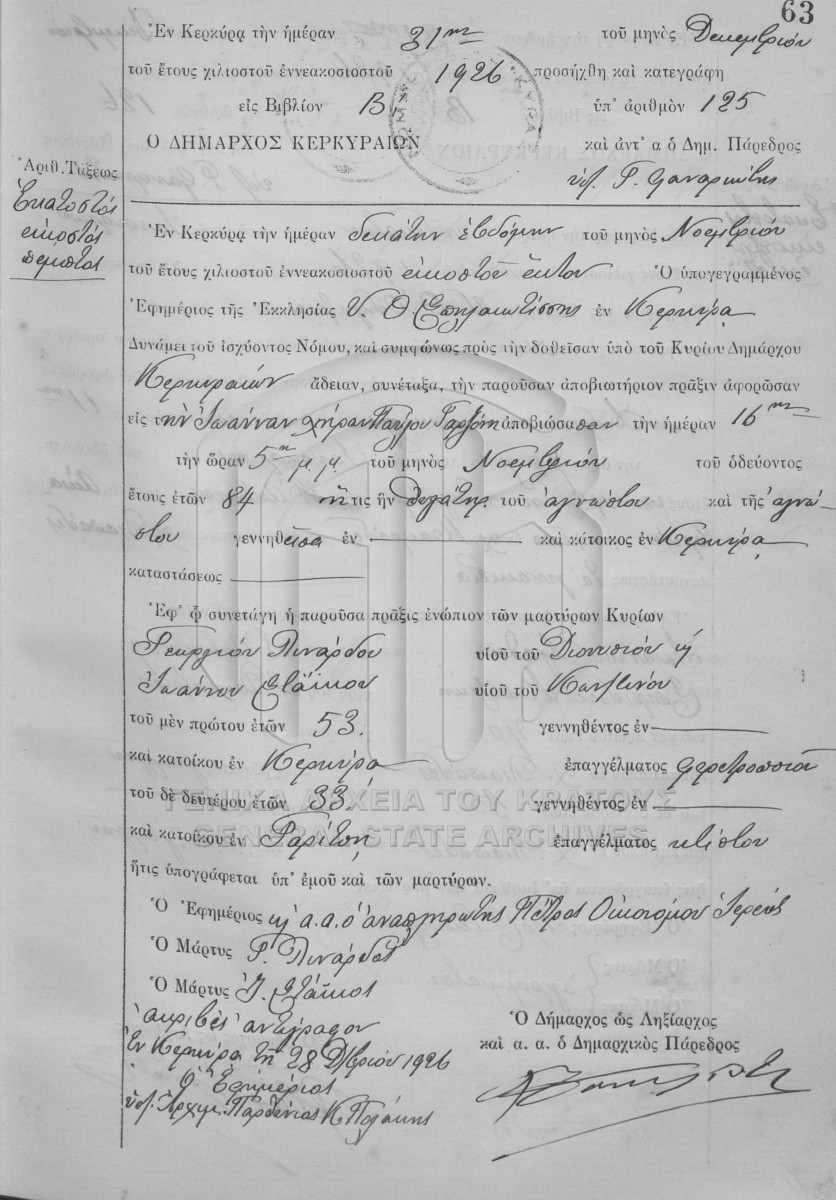 63
Ἐν Κερκύρᾳ τὴν ἡμέραν 31ην τοῦ μηνὸς Δεκεμβρίου
τοῦ ἔτους χιλιοστοῦ ἐννεακοσιοστοῦ 1926 προσήχθη καὶ κατεγράφη
εἰς Βιβλίον Β. ὑπ' ἀριθμὸν 125
Ο ΔΗΜΑΡΧΟΣ ΚΕΡΚΥΡΑΙΩΝ καὶ ἀντ' α ὁ Δημ. Πάρεδρος
Ἀριθ. Τάξεως
Ἑκατοστὸς
εἰκοστὸς
πέμπτος
Ἐν Κερκύρᾳ τὴν ἡμέραν δεκάτην ἑβδόμην τοῦ μηνὸς Νοεμβρίου
τοῦ ἔτους χιλιοστοῦ ἐννεακοσιοστοῦ εἰκοστοῦ ἕκτου Ὁ ὑπογεγραμμένος
Ἐφημέριος τῆς Ἐκκλησίας Υ. Θ. Σπηλαιωτίσσης ἐν Κερκύρᾳ
Δυνάμει τοῦ ἰσχύοντος Νόμου, καὶ συμφώνως πρὸς τὴν δοθεῖσαν ὑπὸ τοῦ Κυρίου Δημάρχου
Κερκυραίων ἄδειαν, συνέταξα, τὴν παροῦσαν ἀποβιωτήριον πρᾶξιν ἀφορῶσαν
εἰς τὴν Ἰωάνναν χήραν Παύλου ἀποβιώσασαν τὴν ἡμέραν 16ην
τὴν ὥραν 5ην μ μ τοῦ μηνὸς Νοεμβρίου τοῦ ὁδεύοντος
ἔτους ἐτῶν 84 ἥτις ἦν θυγάτηρ τοῦ ἀγνώστου καὶ τῆς ἀγνώ
στου γεννηθεῖσα ἐν καὶ κάτοικος ἐν Κερκύρᾳ
καταστάσεως
Ἐφ' ᾧ συνετάγη ἡ παροῦσα πρᾶξις ἐνώπιον τῶν μαρτύρων Κυρίων
Γεωργίου Λινάρδου υἱοῦ τοῦ Διονυσίου κ
Ἰωάννου Στάϊκου υἱοῦ τοῦ Κων/τίνου
τοῦ μὲν πρώτου ἐτῶν 53. γεννηθέντος ἐν
καὶ κατοίκου ἐν Κερκύρᾳ ἐπαγγέλματος φερετροποιοῦ
τοῦ δὲ δευτέρου ἐτῶν 33. γεννηθέντος ἐν
ΓΕΝΙΚΑ ΑΡΧΕΙΑ ΤΟΥ ΚΡΑΤΟΥΣ
GENERAL STATE ARCHIVES
καὶ κατοίκου ἐν Γαρίτσῃ ἐπαγγέλματος κτίστου
ἥτις ὑπογράφεται ὑπ' ἐμοῦ καὶ τῶν μαρτύρων.
Ὁ Ἐφημέριος κ α.α. ὁ ἀναπληρωτὴς Πέτρος Οἰκονόμου Ἱερεύς
Ὁ Μάρτυς Γ. Λινάρδος
Ὁ Μάρτυς Ἰ. Στάϊκος
ἀκριβὲς ἀντίγραφον
Ἐν Κερκύρᾳ τῇ 28 Δ/βρίου 1926
Ὁ Ἐφημέριος
ὑπ. Ἀρχιμ. Παρθένιος Κ Πολάκης
Ὁ Δήμαρχος ὡς Ληξίαρχος
καὶ α. α. ὁ Δημαρχικὸς Πάρεδρος